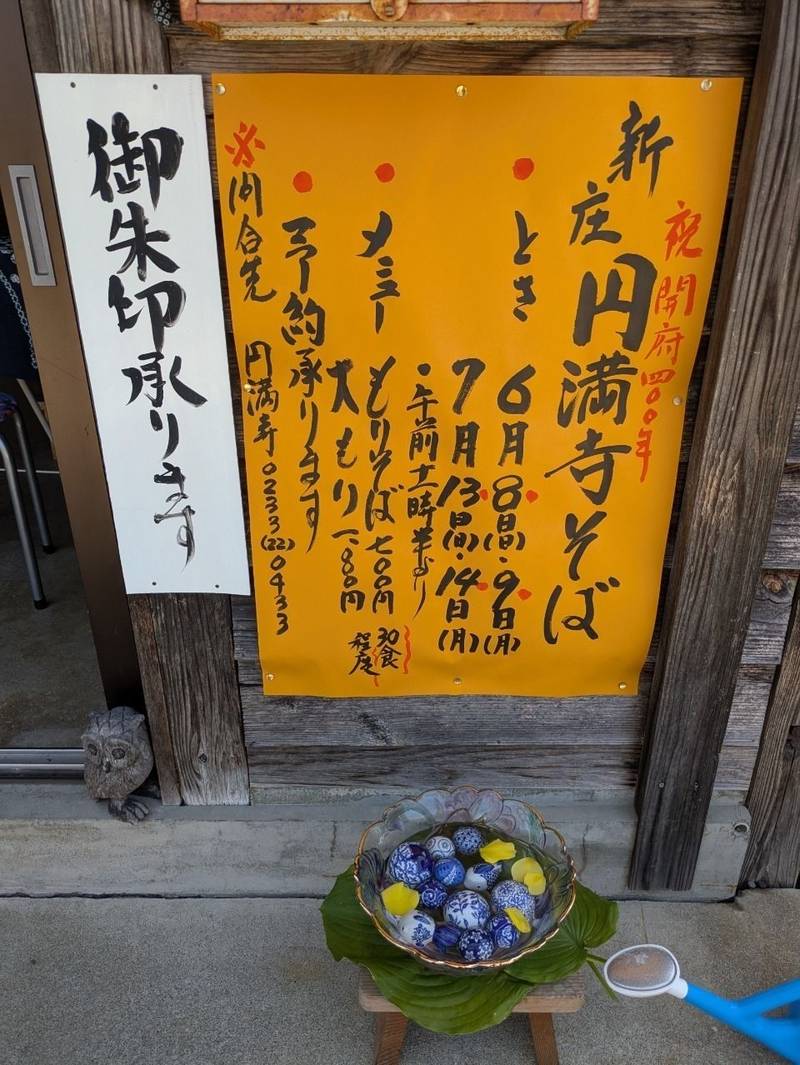 祝開府四〇〇年
新庄円満寺そば
●とき 6月8日(日)・9日(月)
7月13日(日)・14日(月)
・午前十一時半より
●メニュー もりそば 七〇〇円
大もり 一、〇〇〇円
30食
程度
●予約承ります
※問合先 円満寺 0233(22)0433
御朱印承ります